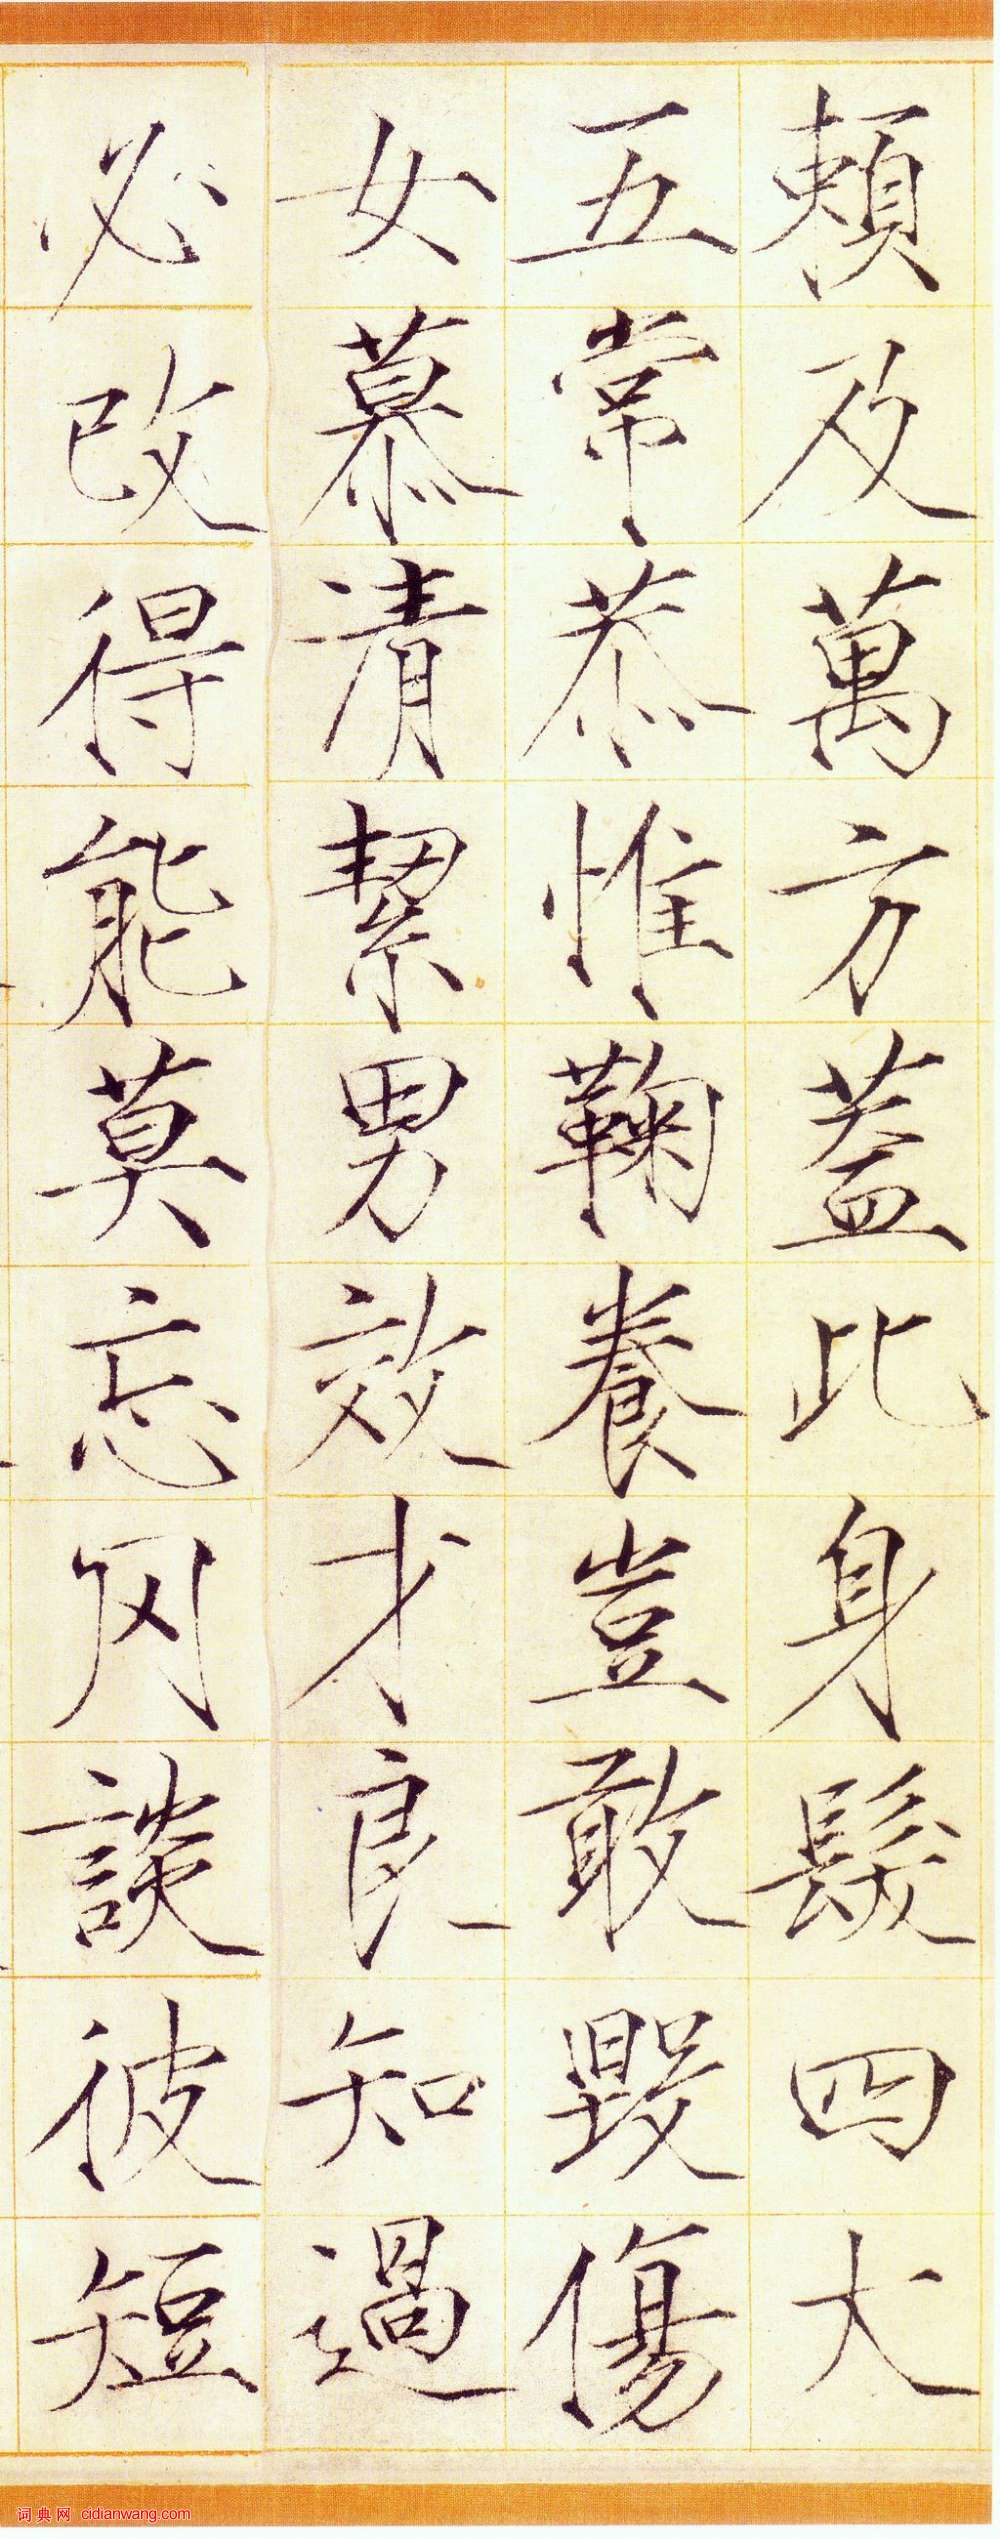 頼及萬方蓋此身髮四大
五常恭惟鞠養豈敢毀傷
女慕清絜男效才良知過
必改得能莫忘罔談彼短
词典网 cidianwang.com